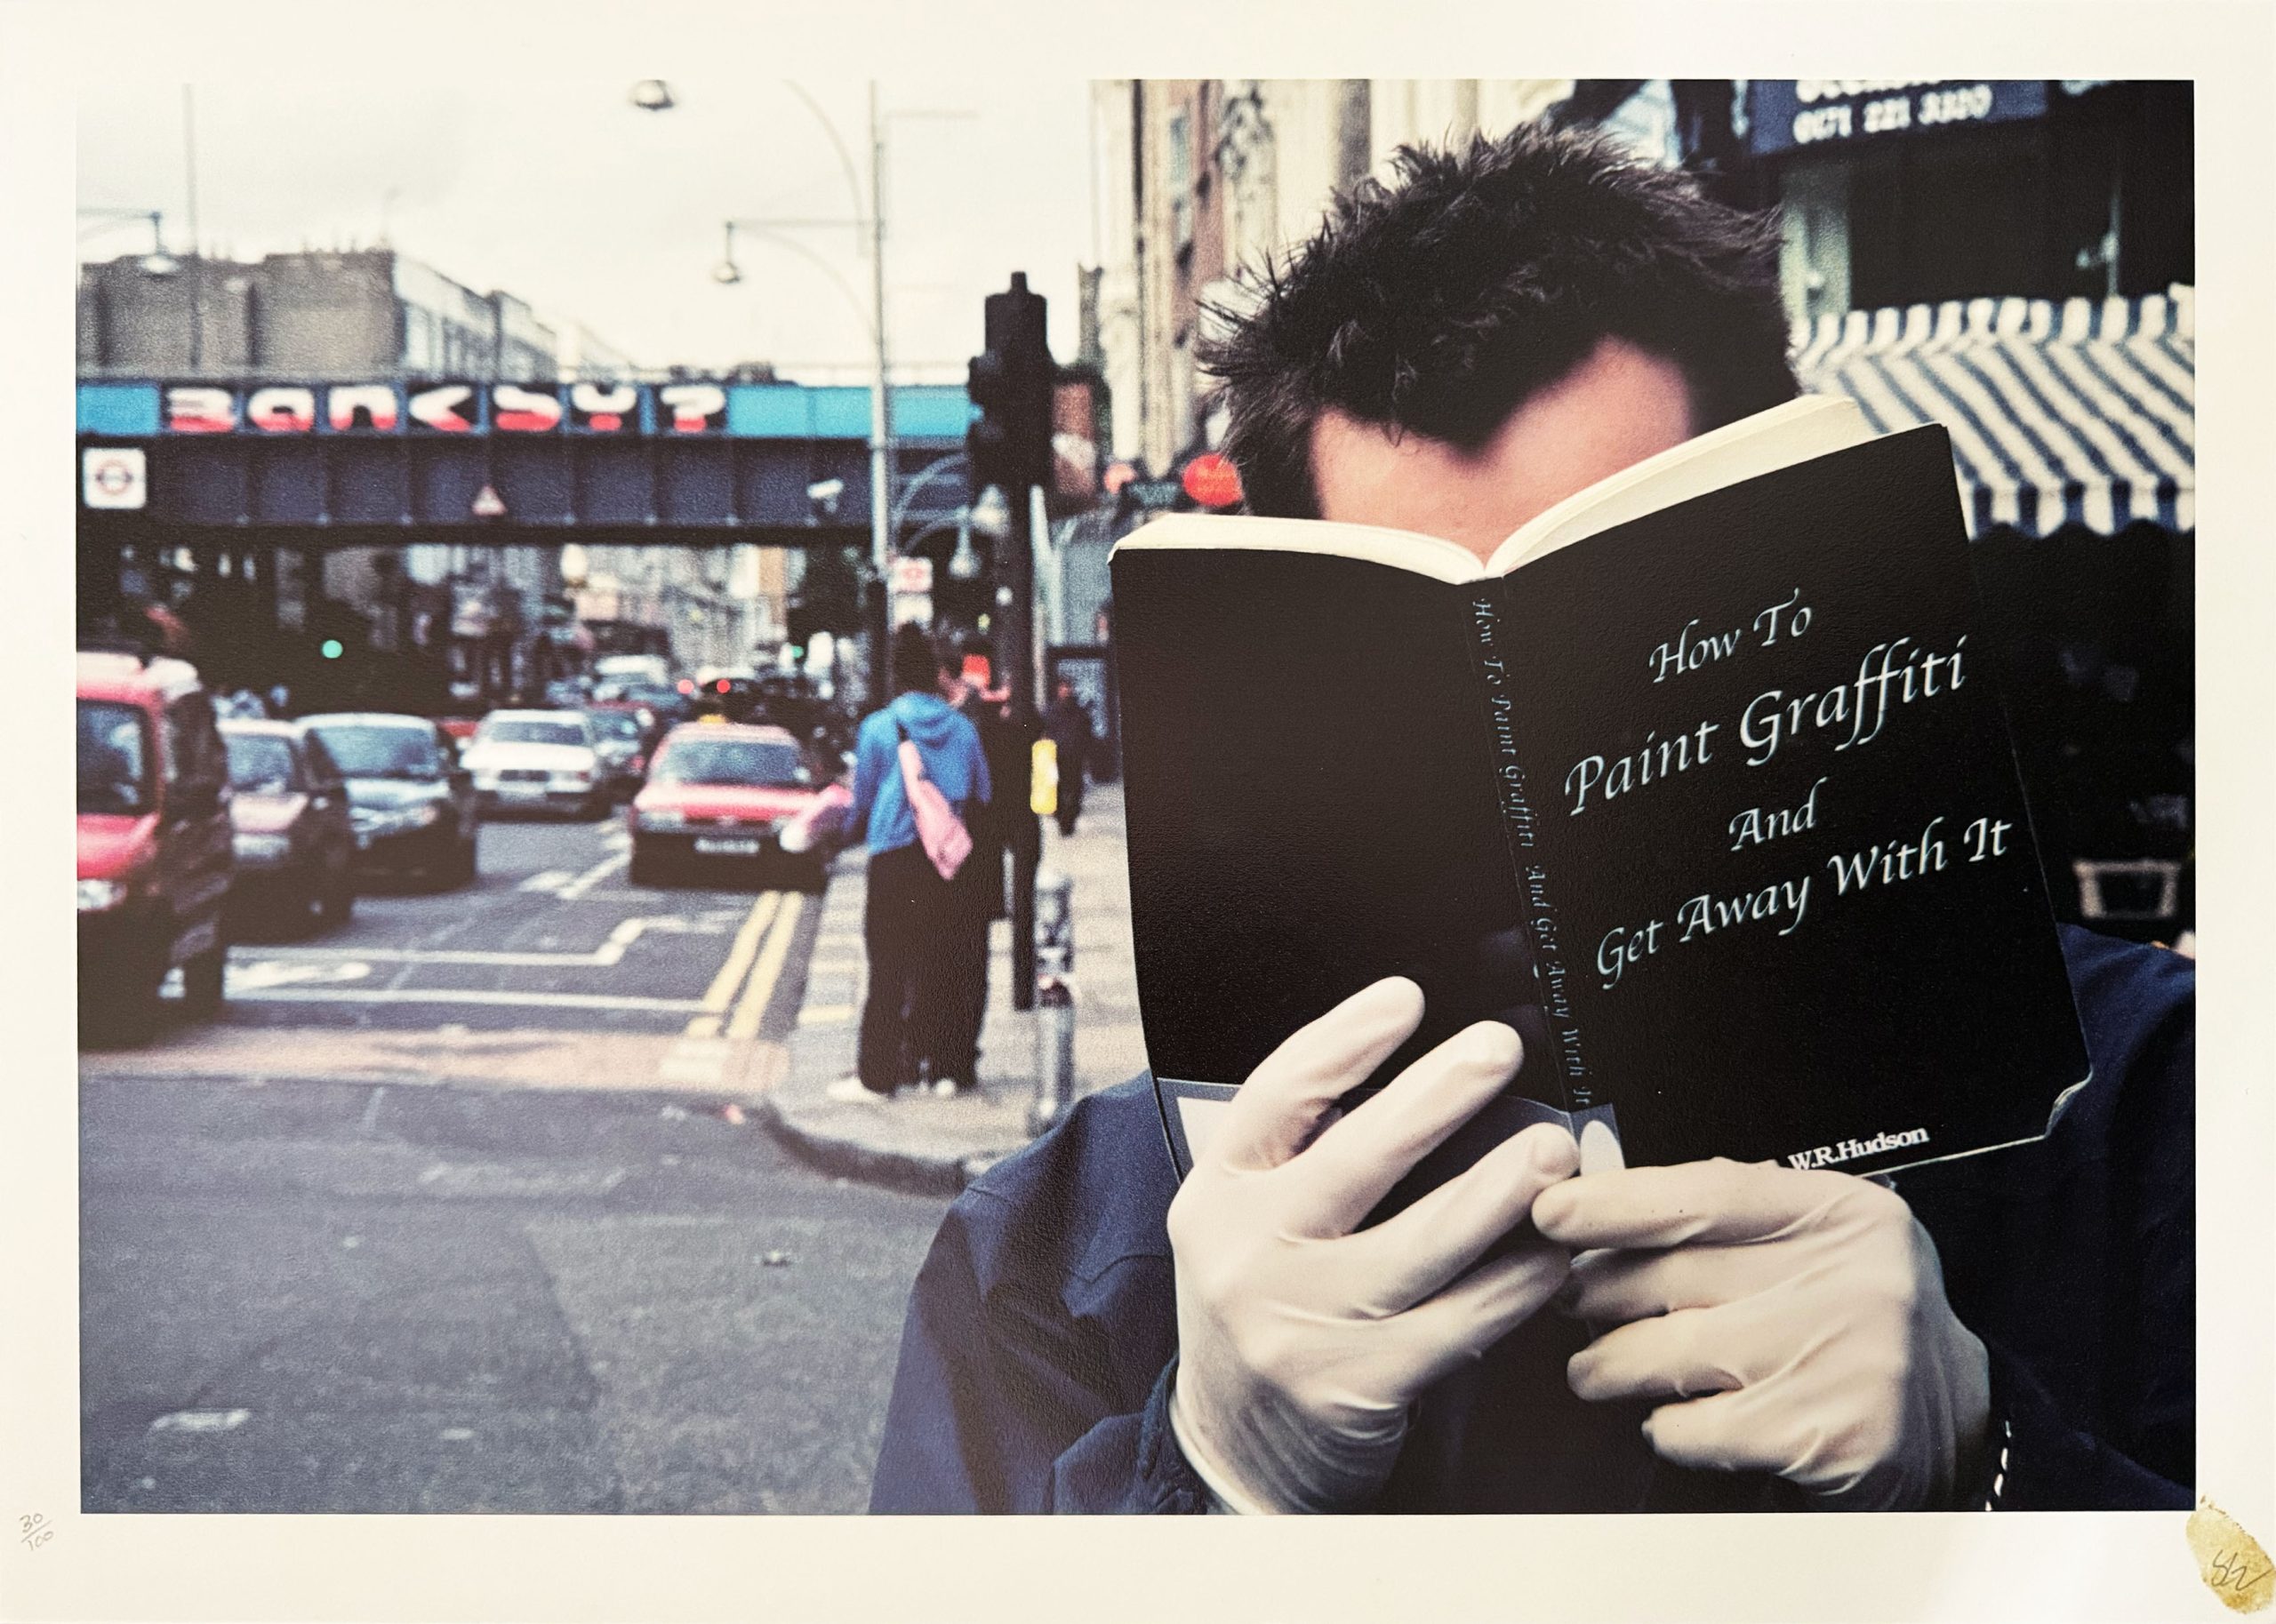 0171 221 3320
BANKSY?
How To
Paint Graffiti
And
Get Away With It
How To Paint Graffiti And Get Away With It
W.R.Hudson
30/100